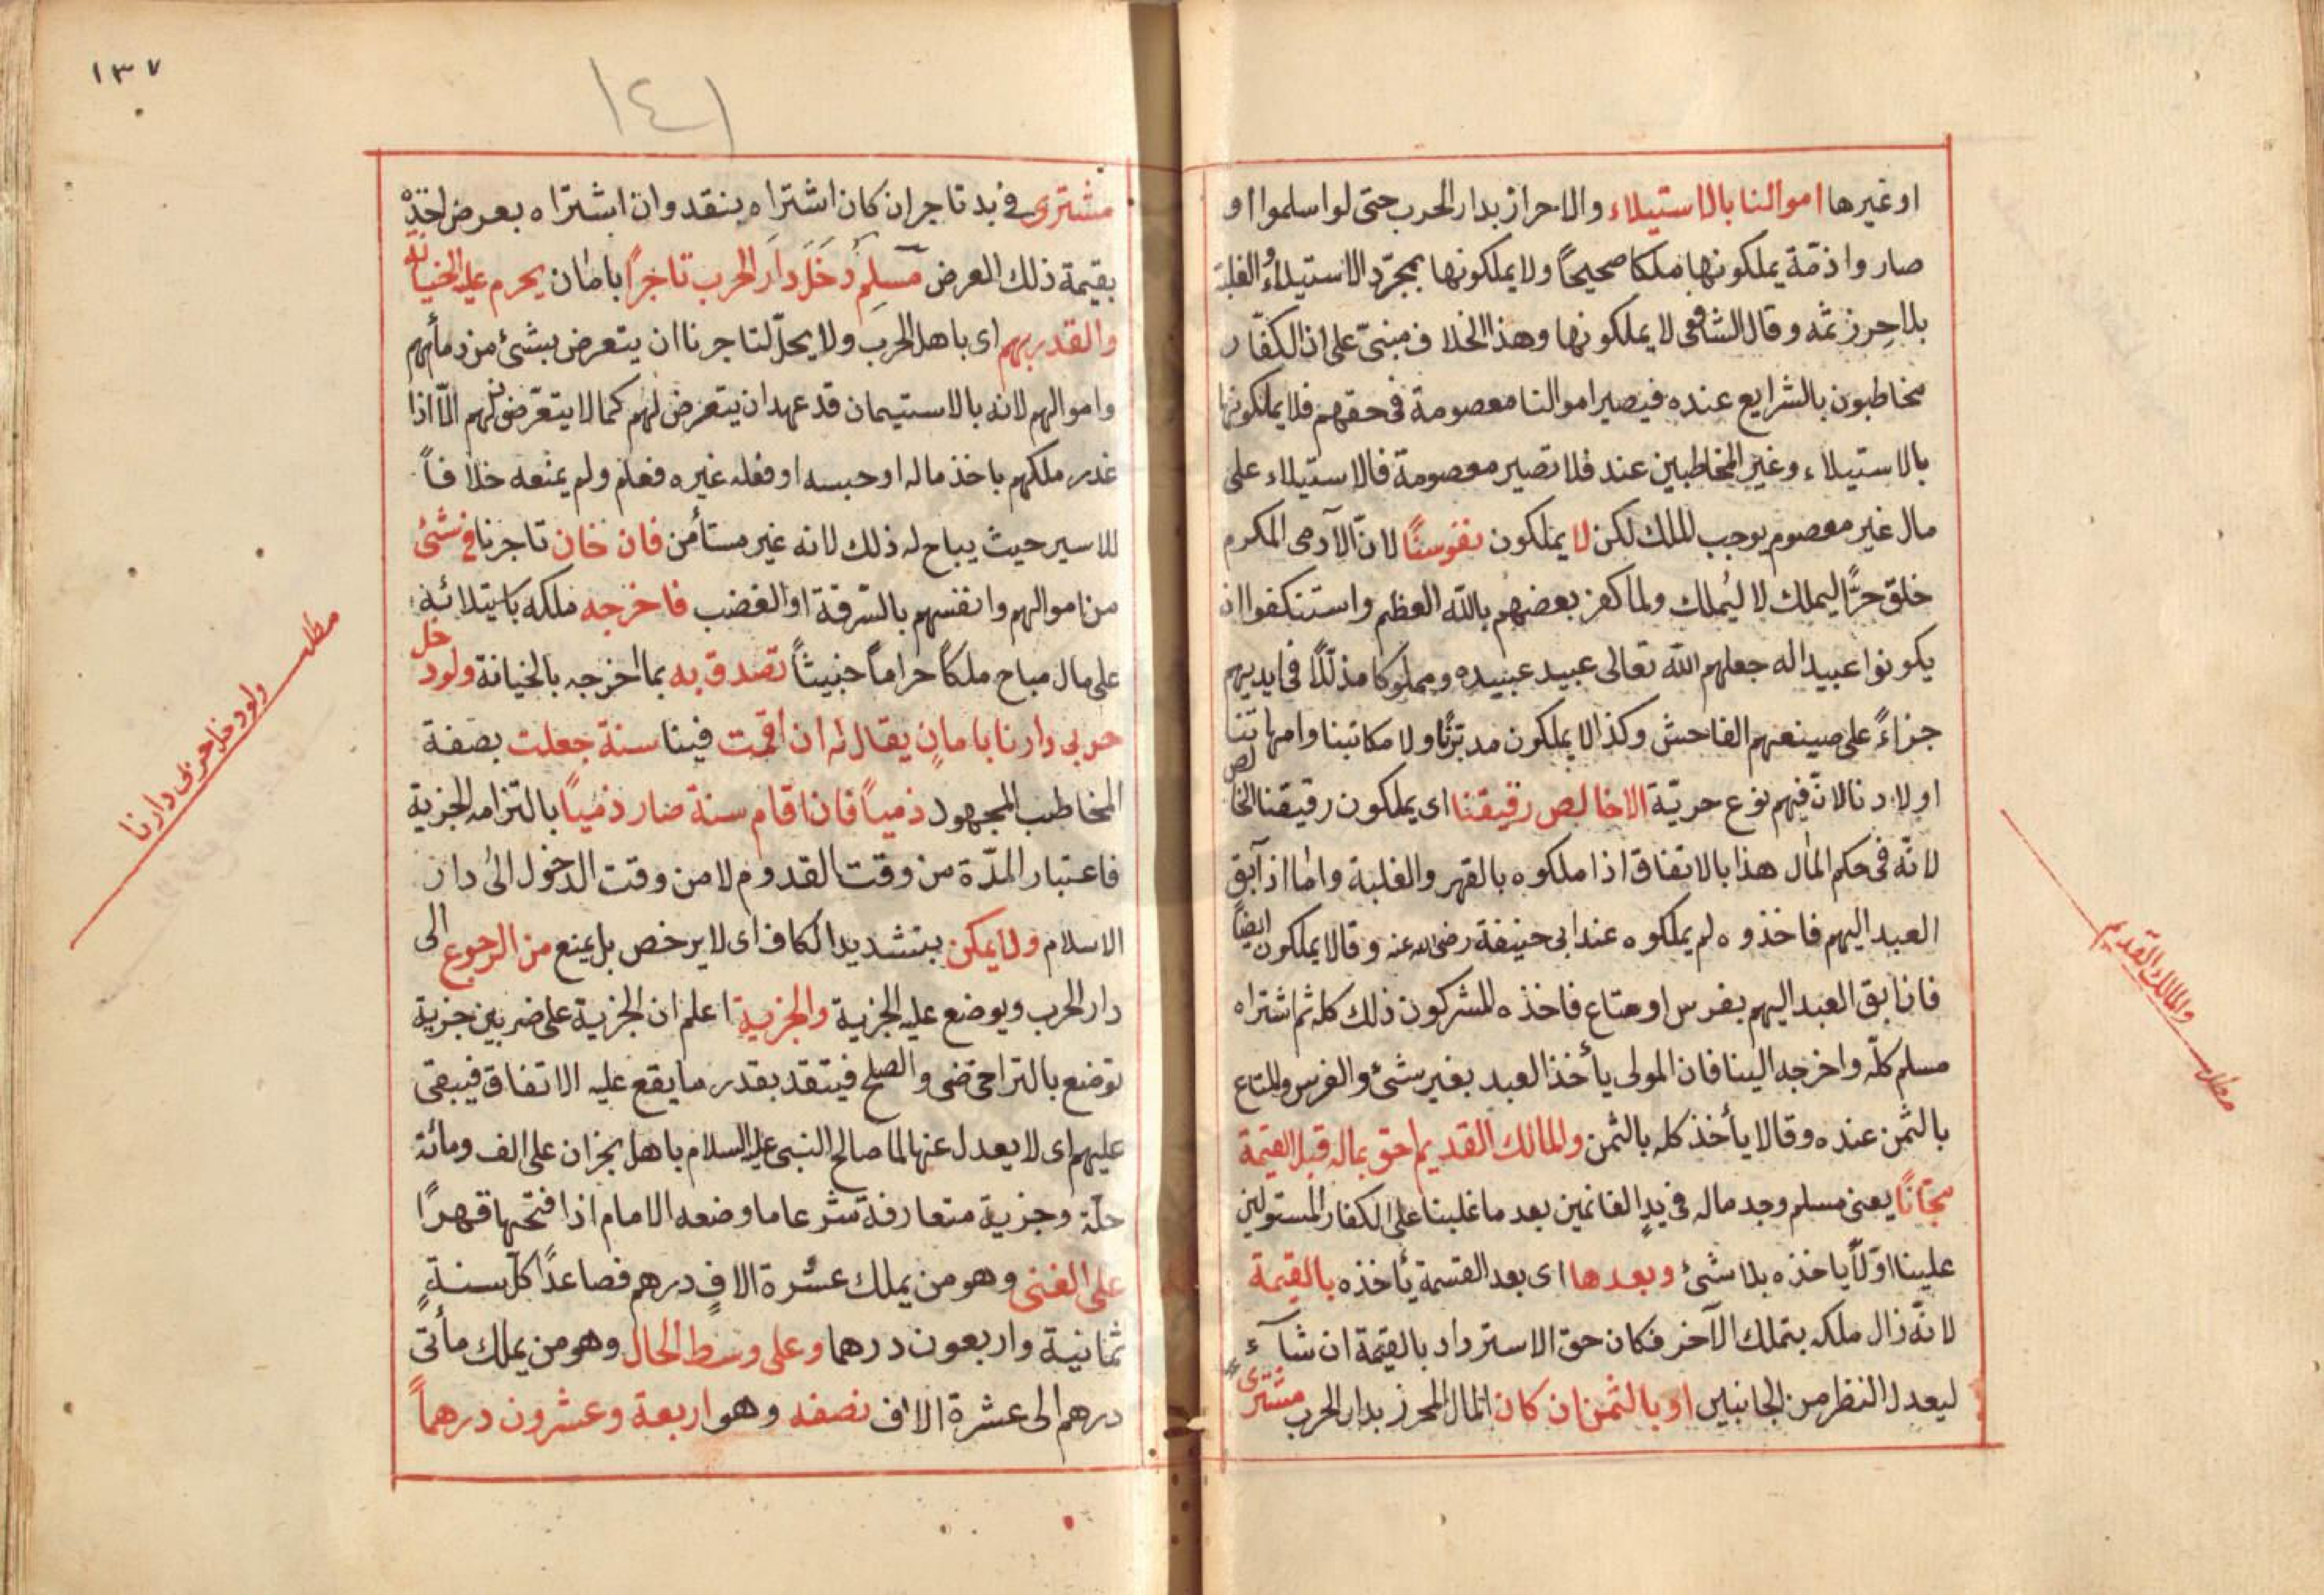 او غيرها اموالنا بالاستيلاء والاحراز بدار الحرب حتى لو اسلموا او
صاروا ذمّة يملكونها ملكا صحيحاً ولا يملكونها بمجرّد الاستيلاء والغلبة
بلا حِرز ثمّه وقال الشافعى لا يملكونها وهذا الخلاف مبنىّ على ان الكفّار
مخاطبون بالشرايع عنده فيصير اموالنا معصومة فى حقهم فلا يملكونها
بالاستيلاء وغير المخاطبين عند فلا تصير معصومة فالاستيلاء على
مال غير معصوم يوجب الملك لكن لا يملكون نفوسنًا لانّ الآدمى المكرم
خلق حرًّا ليملك لا ليُملك ولما كفر بعضهم بالله العظم واستنكفوا ان
يكونوا عبيدا له جعلهم الله تعالى عبيد عبيده ومملوكا مذلّلًا فى ايديهم
جزاءً على صينعهم الفاحش وكذا لا يملكون مدبّرنا ولا مكاتبنا وامهاتنا
اولادنا لانّ فيهم نوع حريّة الاخالص رقيقنا اى يملكون رقيقنا الخالص
لانّه فى حكم المال هذا بالاتفاق اذا ملكوه بالقهر والغلبة واما اذ آبق
العبد اليهم فاخذوه لم يملكوه عند ابى حنيفة رضى الله عنه وقالا يملكون ايضاً
فان ابق العبد اليهم بفرس او متاع فاخذه المشركون ذلك كله ثم اشتراه
مسلم كلّه واخرجه الينا فان المولى يأخذ العبد بغير شئ والفرس والمتاع
بالثمن عنده وقالا يأخذ كله بالثمن والمالك القديم احق بماله قبل القيمة
مجّانًا يعنى مسلم وجد ماله فى يدِ الغانمين بعد ما غلبنا على الكفار المستولين
علينا اوّلاً ياخذه بلا شئ وبعدها اى بعد القسمة يأخذه بالقيمة
لانّه زال ملكه بتملك الآخر فكان حق الاسترداد بالقيمة ان شآء
ليعدل النظر من الجانبين او بالثمن ان كان المال المحرز بدار الحرب مشترى
والمالك القديم
مطلب
١٣٧
١٤١
مشترى فى يد تاجر ان كان اشتراه بنقد وان اشتراه بعرض اخذه
بقيمة ذلك العرض مسلم دخل دار الحرب تاجراً بامان يحرم عليه الخيانة
والغدر بهم اى باهل الحرب ولا يحلّ لتاجرنا ان يتعرض بشئ من دمأئهم
واموالهم لانه بالاستيمان قد عهد ان يتعرض لهم كما لا يتعرّضون لهم الّا اذا
غدر ملكهم باخذ ماله او حبسه او فعله غيره فعلم ولم يمنعه خلافاً
للاسير حيث يباح له ذلك لانه غير مستأمن فان خان تاجرنا فى شئ
من اموالهم وانفسهم بالسّرقة او الغضب فاخرجه ملكه باستيلائه
على مال مباح ملكاً حراماً خبيثاً تصدق به بما اخرجه بالخيانة ولو دخل
حربى دارنا بامانٍ يقال له ان اقمت فينا سنة جعلت بصفة
المخاطب المجهول ذمياً فان اقام سنة صار ذمياً بالتزامه الجزية
فاعتبار المدّة من وقت القدوم لا من وقت الدخول الى دار
الاسلام ولا يمكن بتشديد الكاف اى لا يرخص بل يمنع من الرجوع الى
دار الحرب ويوضع عليه الجزية والجزية اعلم ان الجزية على ضربين جزية
توضع بالتراخى ضى والصلح فيتقد بقدر ما يقع عليه الاتفاق فيبقى
عليهم اى لا يعدل عنها لما صالح النبى عليه السلام باهل نجران على الف ومائة
حلّة وجزية متعارفة شر عاما وضعه الامام اذا فتحها قهرًا
على الغنى وهو من يملك عشرة الافٍ درهم فصاعدًا كلّ سنةٍ
ثمانية واربعون درهما وعلى وسط الحال وهو من يملك مأتى
درهم الى عشرة الاف نصفه وهو اربعة وعشرون درهماً
مطلب
ولو دخل حربى دارنا